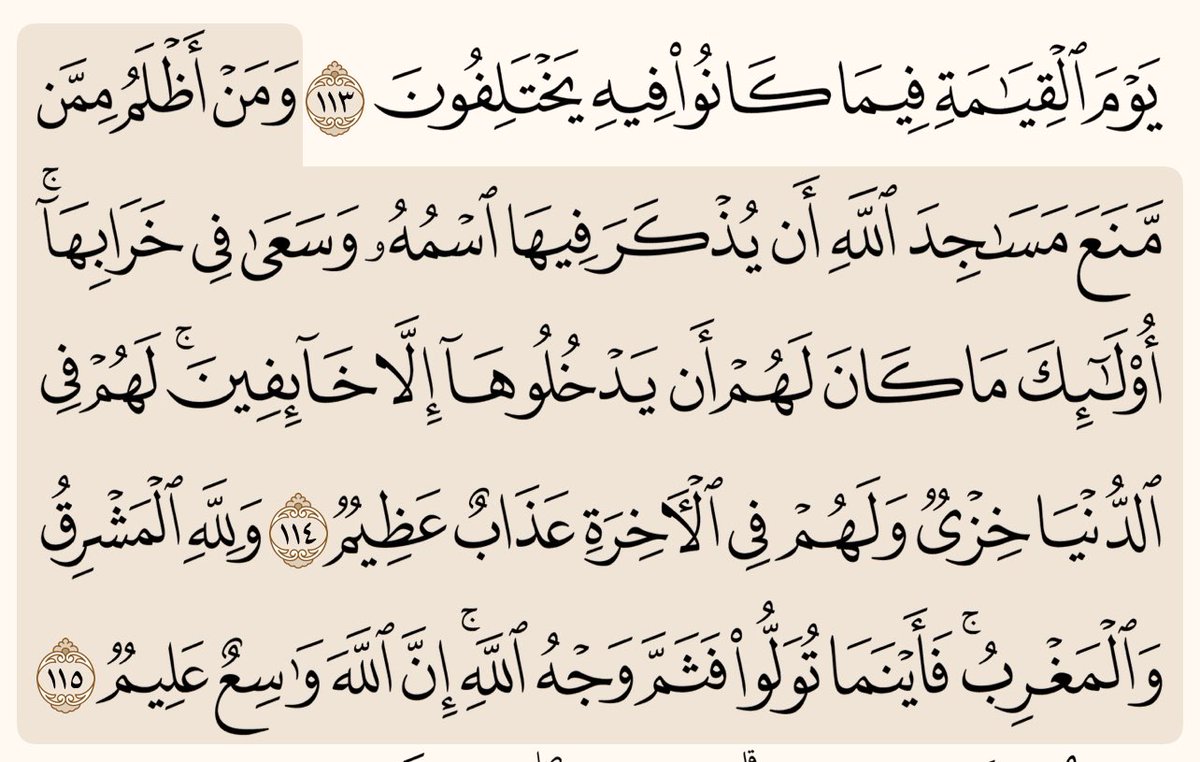 يَوْمَ ٱلْقِيَـٰمَةِ فِيمَا كَانُوا۟ فِيهِ يَخْتَلِفُونَ ١١٣ وَمَنْ أَظْلَمُ مِمَّن
مَّنَعَ مَسَـٰجِدَ ٱللَّهِ أَن يُذْكَرَ فِيهَا ٱسْمُهُۥ وَسَعَىٰ فِى خَرَابِهَآ ۚ
أُو۟لَـٰٓئِكَ مَا كَانَ لَهُمْ أَن يَدْخُلُوهَآ إِلَّا خَآئِفِينَ ۚ لَهُمْ فِى
ٱلدُّنْيَا خِزْىٌ وَلَهُمْ فِى ٱلْـَٔاخِرَةِ عَذَابٌ عَظِيمٌ ١١٤ وَلِلَّهِ ٱلْمَشْرِقُ
وَٱلْمَغْرِبُ ۚ فَأَيْنَمَا تُوَلُّوا۟ فَثَمَّ وَجْهُ ٱللَّهِ ۚ إِنَّ ٱللَّهَ وَٰسِعٌ عَلِيمٌ ١١٥